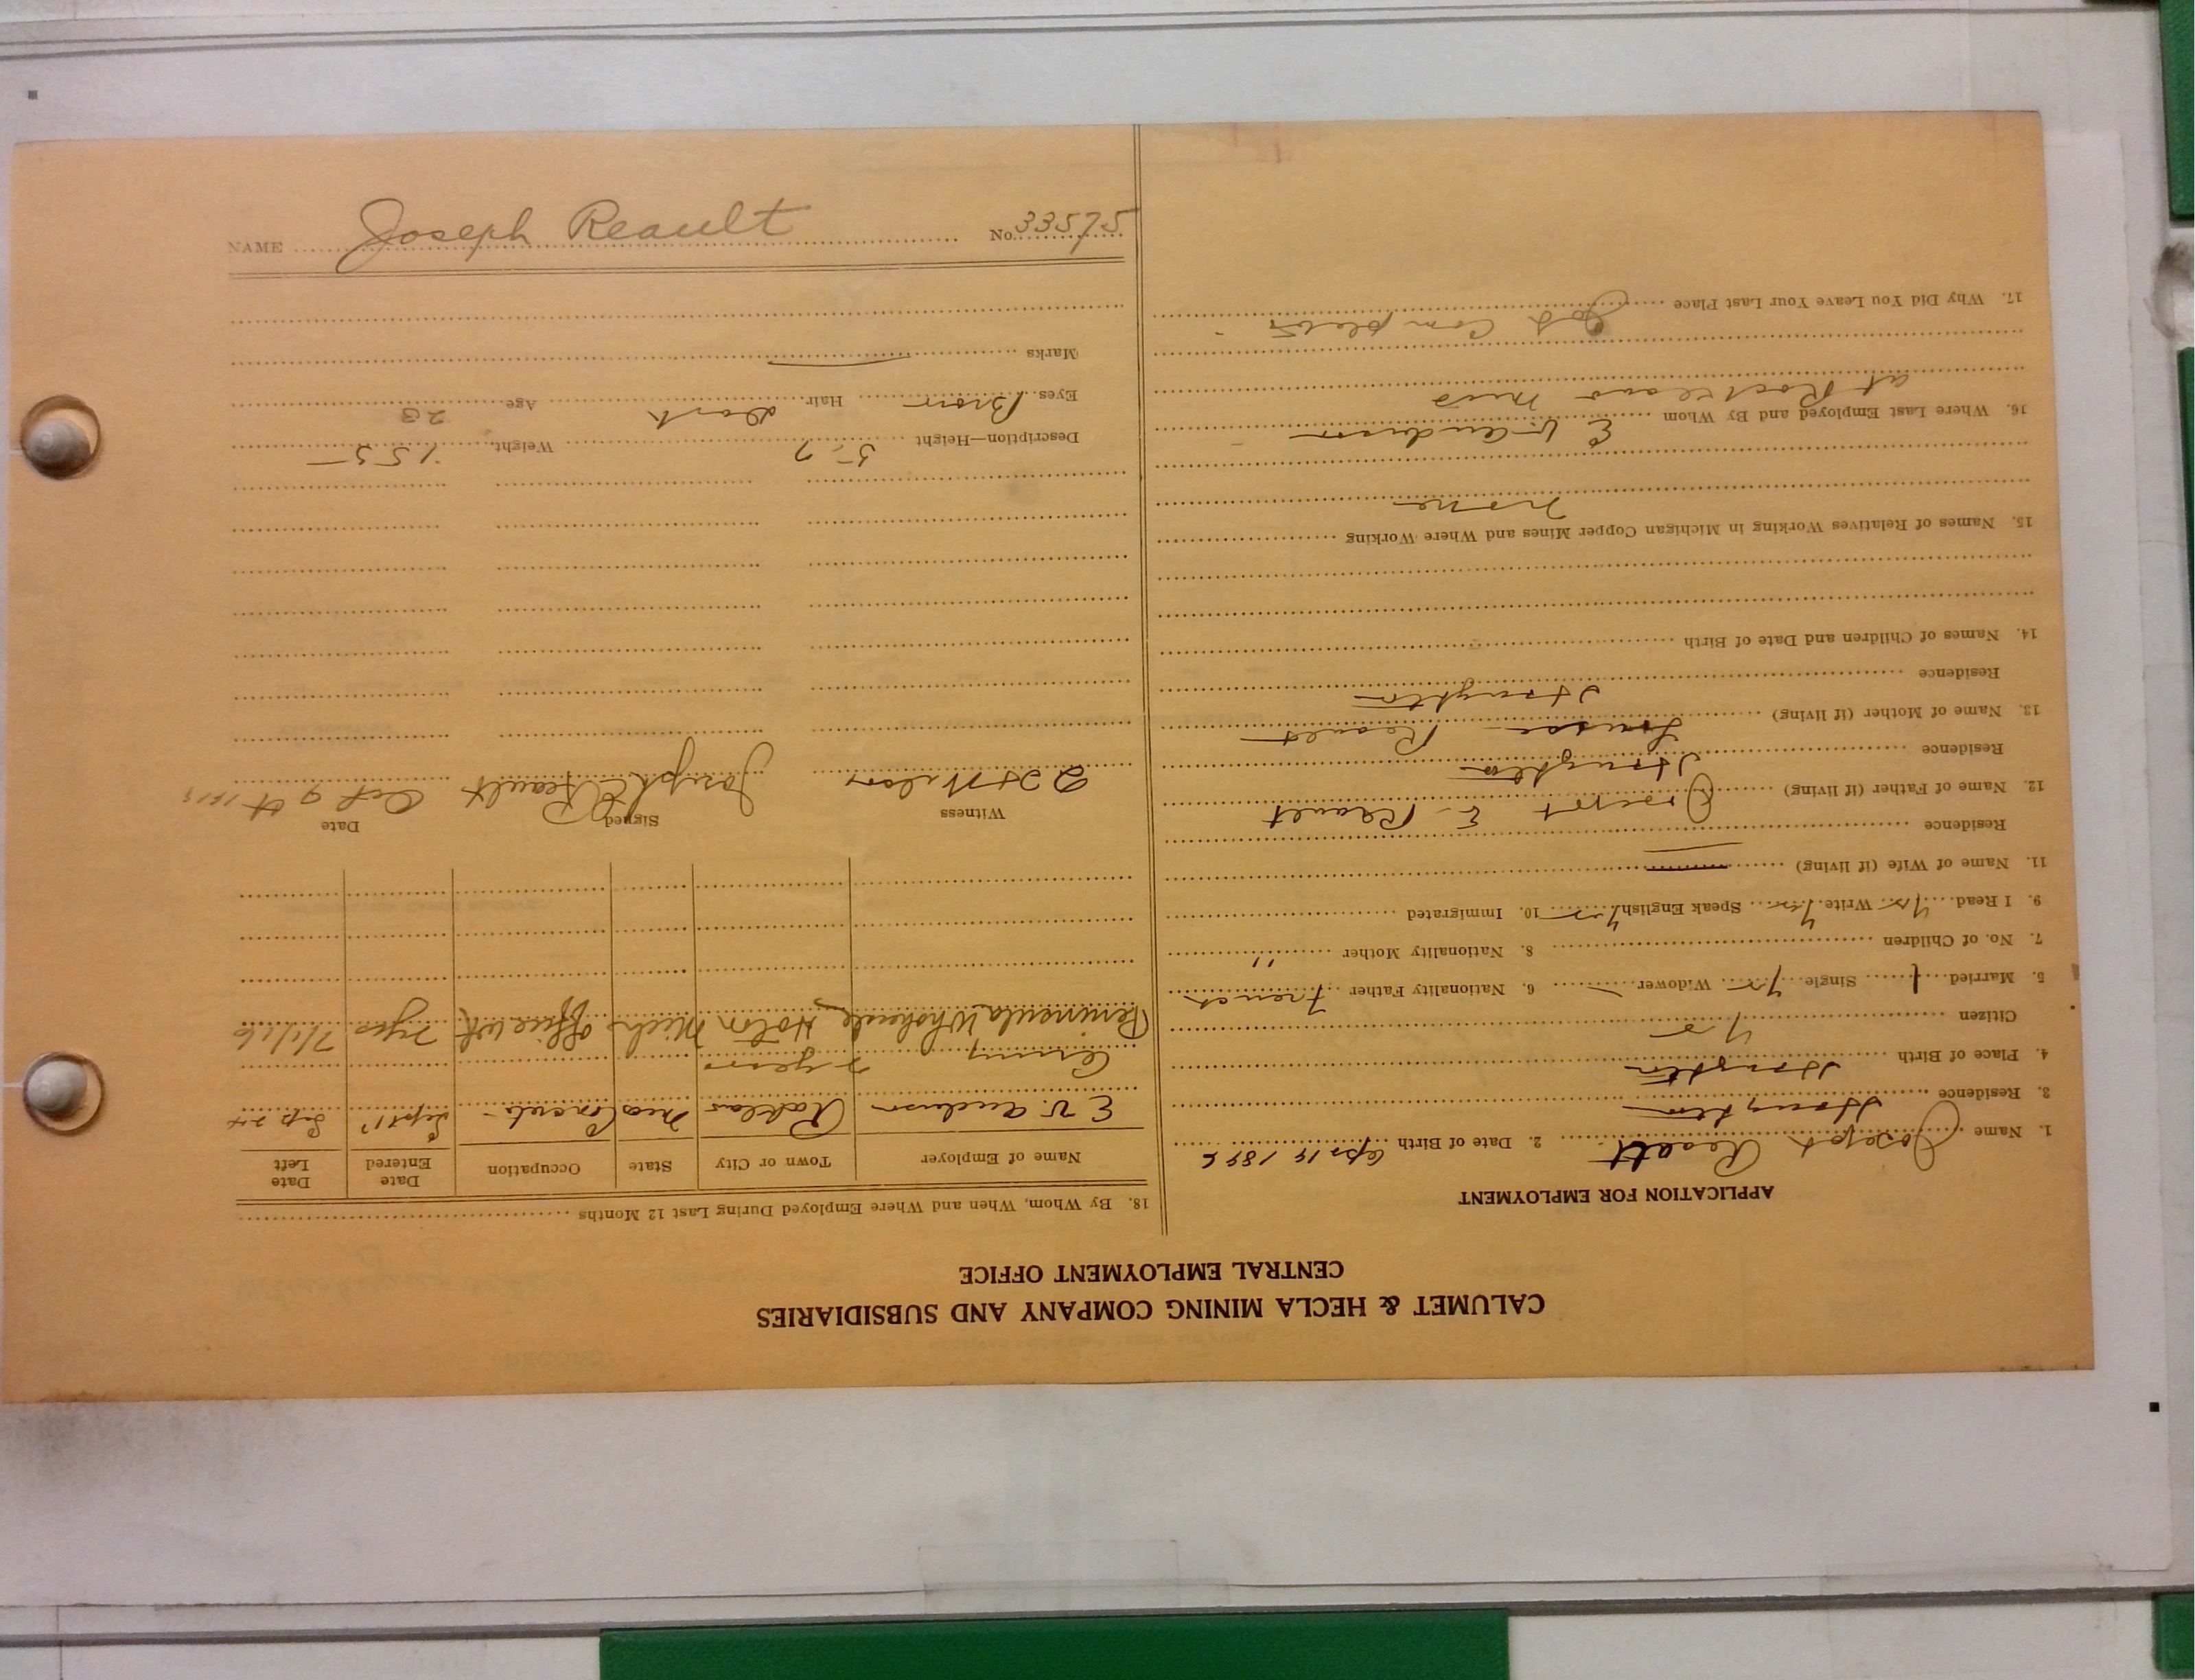 CALUMET & HECLA MINING COMPANY AND SUBSIDIARIES
CENTRAL EMPLOYMENT OFFICE
APPLICATION FOR EMPLOYMENT
1. Name Joseph Reault 2. Date of Birth Apr 19 1896
3. Residence Houghton
4. Place of Birth Houghton
Citizen Yes
5. Married Single Yes Widower 6. Nationality Father French
7. No. of Children 8. Nationality Mother "
9. I Read Yes Write Yes Speak English Yes 10. Immigrated
11. Name of Wife (if living)
Residence
12. Name of Father (if living) Joseph E. Reault
Residence Houghton
13. Name of Mother (if living) Louisa Reault
Residence Houghton
14. Names of Children and Date of Birth
15. Names of Relatives Working in Michigan Copper Mines and Where Working
None
16. Where Last Employed and By Whom E V. Anderson
at Rockland Mich
17. Why Did You Leave Your Last Place
Job Completed
18. By Whom, When and Where Employed During Last 12 Months
Name of Employer Town or City State Occupation Date Entered Date Left
E. V. Anderson Rockland Mich Concrete Sept 17 Sep 24
Army 2 years
Peninsula Wholesale Hoton Mich Office wk 7/1/16
Witness Signed Date
Joseph E Reault Oct 9th 1919
Description—Height 5-7 Weight 155
Eyes Brown Hair Dark Age 23
Marks
NAME Joseph Reault No. 33575